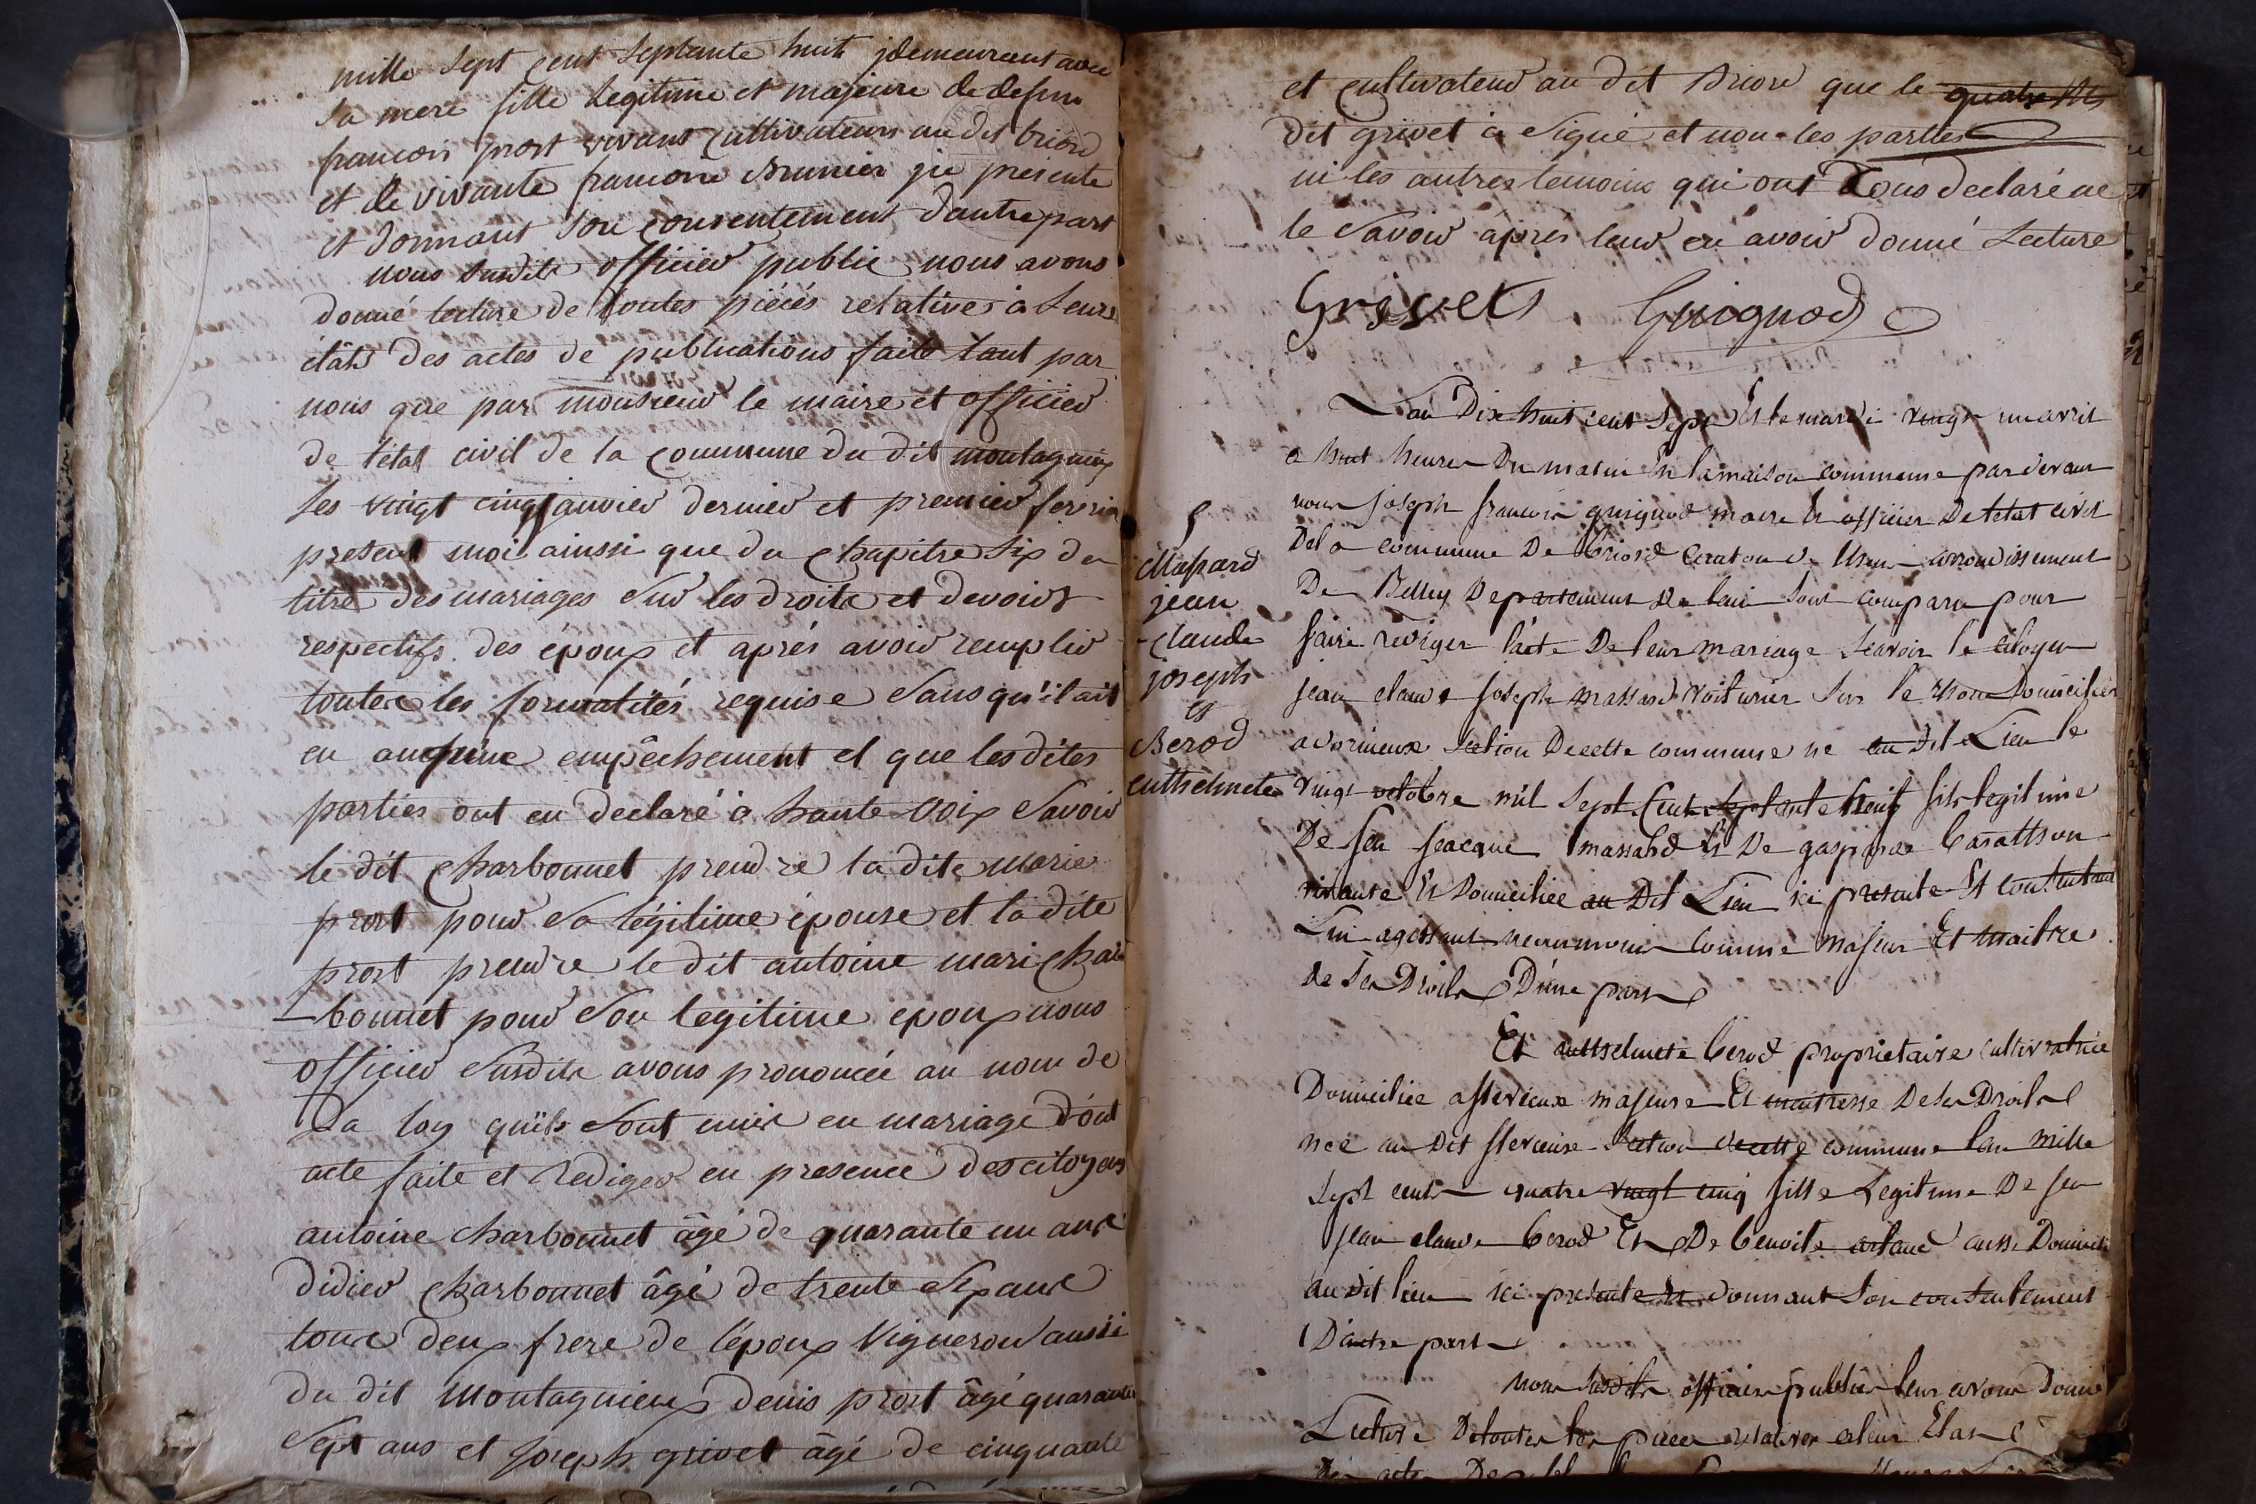 mille sept cent septante huit demeurant avec
sa mere fille legitime et majeure de defun
francois prost vivant cultivateur au dit briord
et de vivante francoise Brunier ici presente
et donnant son consentement d'autre part
nous susdit officier public nous avons
donné lecture de toutes piécés relatives à leurs
états des actes de publications faite tant par
nous que par monsieur le maire et officier
de l'état civil de la commune du dit montagnieu
les vingt cinq janvier dernier et premier fevrier
present mois ainssi que du chapitre six du
titre des mariages sur les droits et devoirs
respectifs des époux et aprés avoir remplir
toutes les formalités requise sans qu'il ait
eu aucune empêchement et que les dites
parties ont eu declaré à haute voix savoir
le dit charbonnet prendre la dite marie
prost pour sa légitime épouse et la dite
prost prendre le dit antoine mari char
-bonnet pour son legitime epoux nous
officier susdit avons prononcée au nom de
la loy qu'ils sont unis en mariage d'ont
acte faite et rediger en presence des citoyens
antoine charbonnet âgé de quarante un ans
didier charbonnet âgé de trente six ans
tous deux frere de l'époux vigneron aussi
du dit montagnieux denis prost âgé quarante
sept ans et joseph grivet âgé de cinquante
et cultivateur au dit Briord que le quatre
dit grivet à signé et non les parties
ni les autres temoins qui ont tous declaré ne
le savoir aprés leur en avoir donné lecture
Grivets Guignod
L'an Dix huit cent sept Et le mardi vingt un avril
a huit heures Du matin En la maison commune par devant
nous joseph francois guignod maire Et officier De letat civil
Dela commune De briord canton de lhuis arrondissement
De Belley Departement De lain sont comparu pour
faire rediger l'acte De leur mariage scavoir le citoyen
jean claude joseph massard voiturier sur le rhone Domicilier
a verizieux section De cette commune né au Dit Lieu le
vingt octobre mil sept Cent septante neuf fils legitime
De feu jeacque massard Et De gasparde
vivante Et Domiciliee au Dit Lieu ici presente Et
Lui agissant neanmoins comme majeur Et maitre
de ses Droits D'une part
Et anthelmete berod proprietaire cultivatrice
Domiciliee a majeure Et maitresse De ses Droits
née au Dit section De cette commune lan mille
sept cent quatre vingt cinq fille Legitime De feu
jean claude berod Et De benoite artaud aussi Domicili
au dit lieu ici presente Et Donnant son consentement
D'autre part
nous susdits officier public leur avons Donné
Lecture De toutes les pieces relatives a leur Etat
5
Massard
jean
claude
joseph
et
Berod
anthelmete